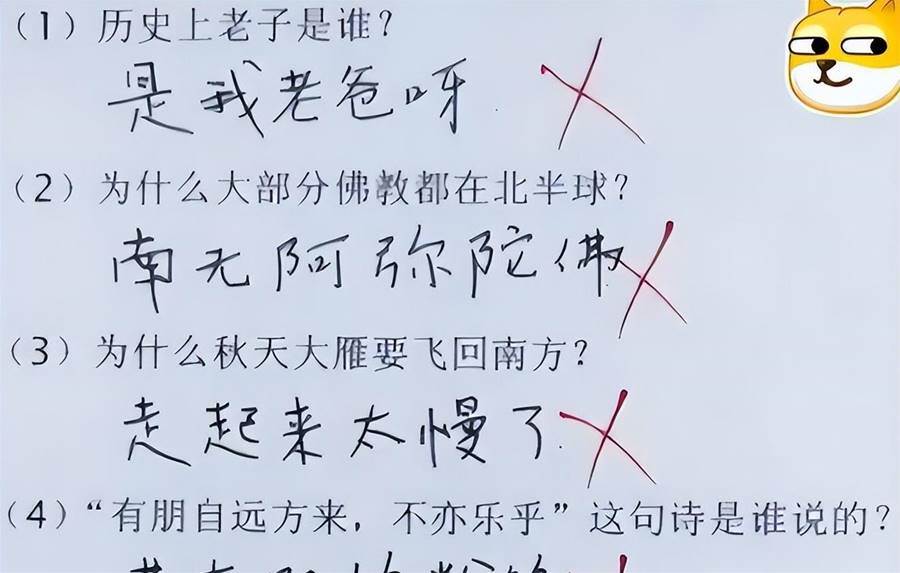 （1）历史上老子是谁？
是我老爸呀
（2）为什么大部分佛教都在北半球？
南无阿弥陀佛
（3）为什么秋天大雁要飞回南方？
走起来太慢了
（4）“有朋自远方来，不亦乐乎”这句诗是谁说的？